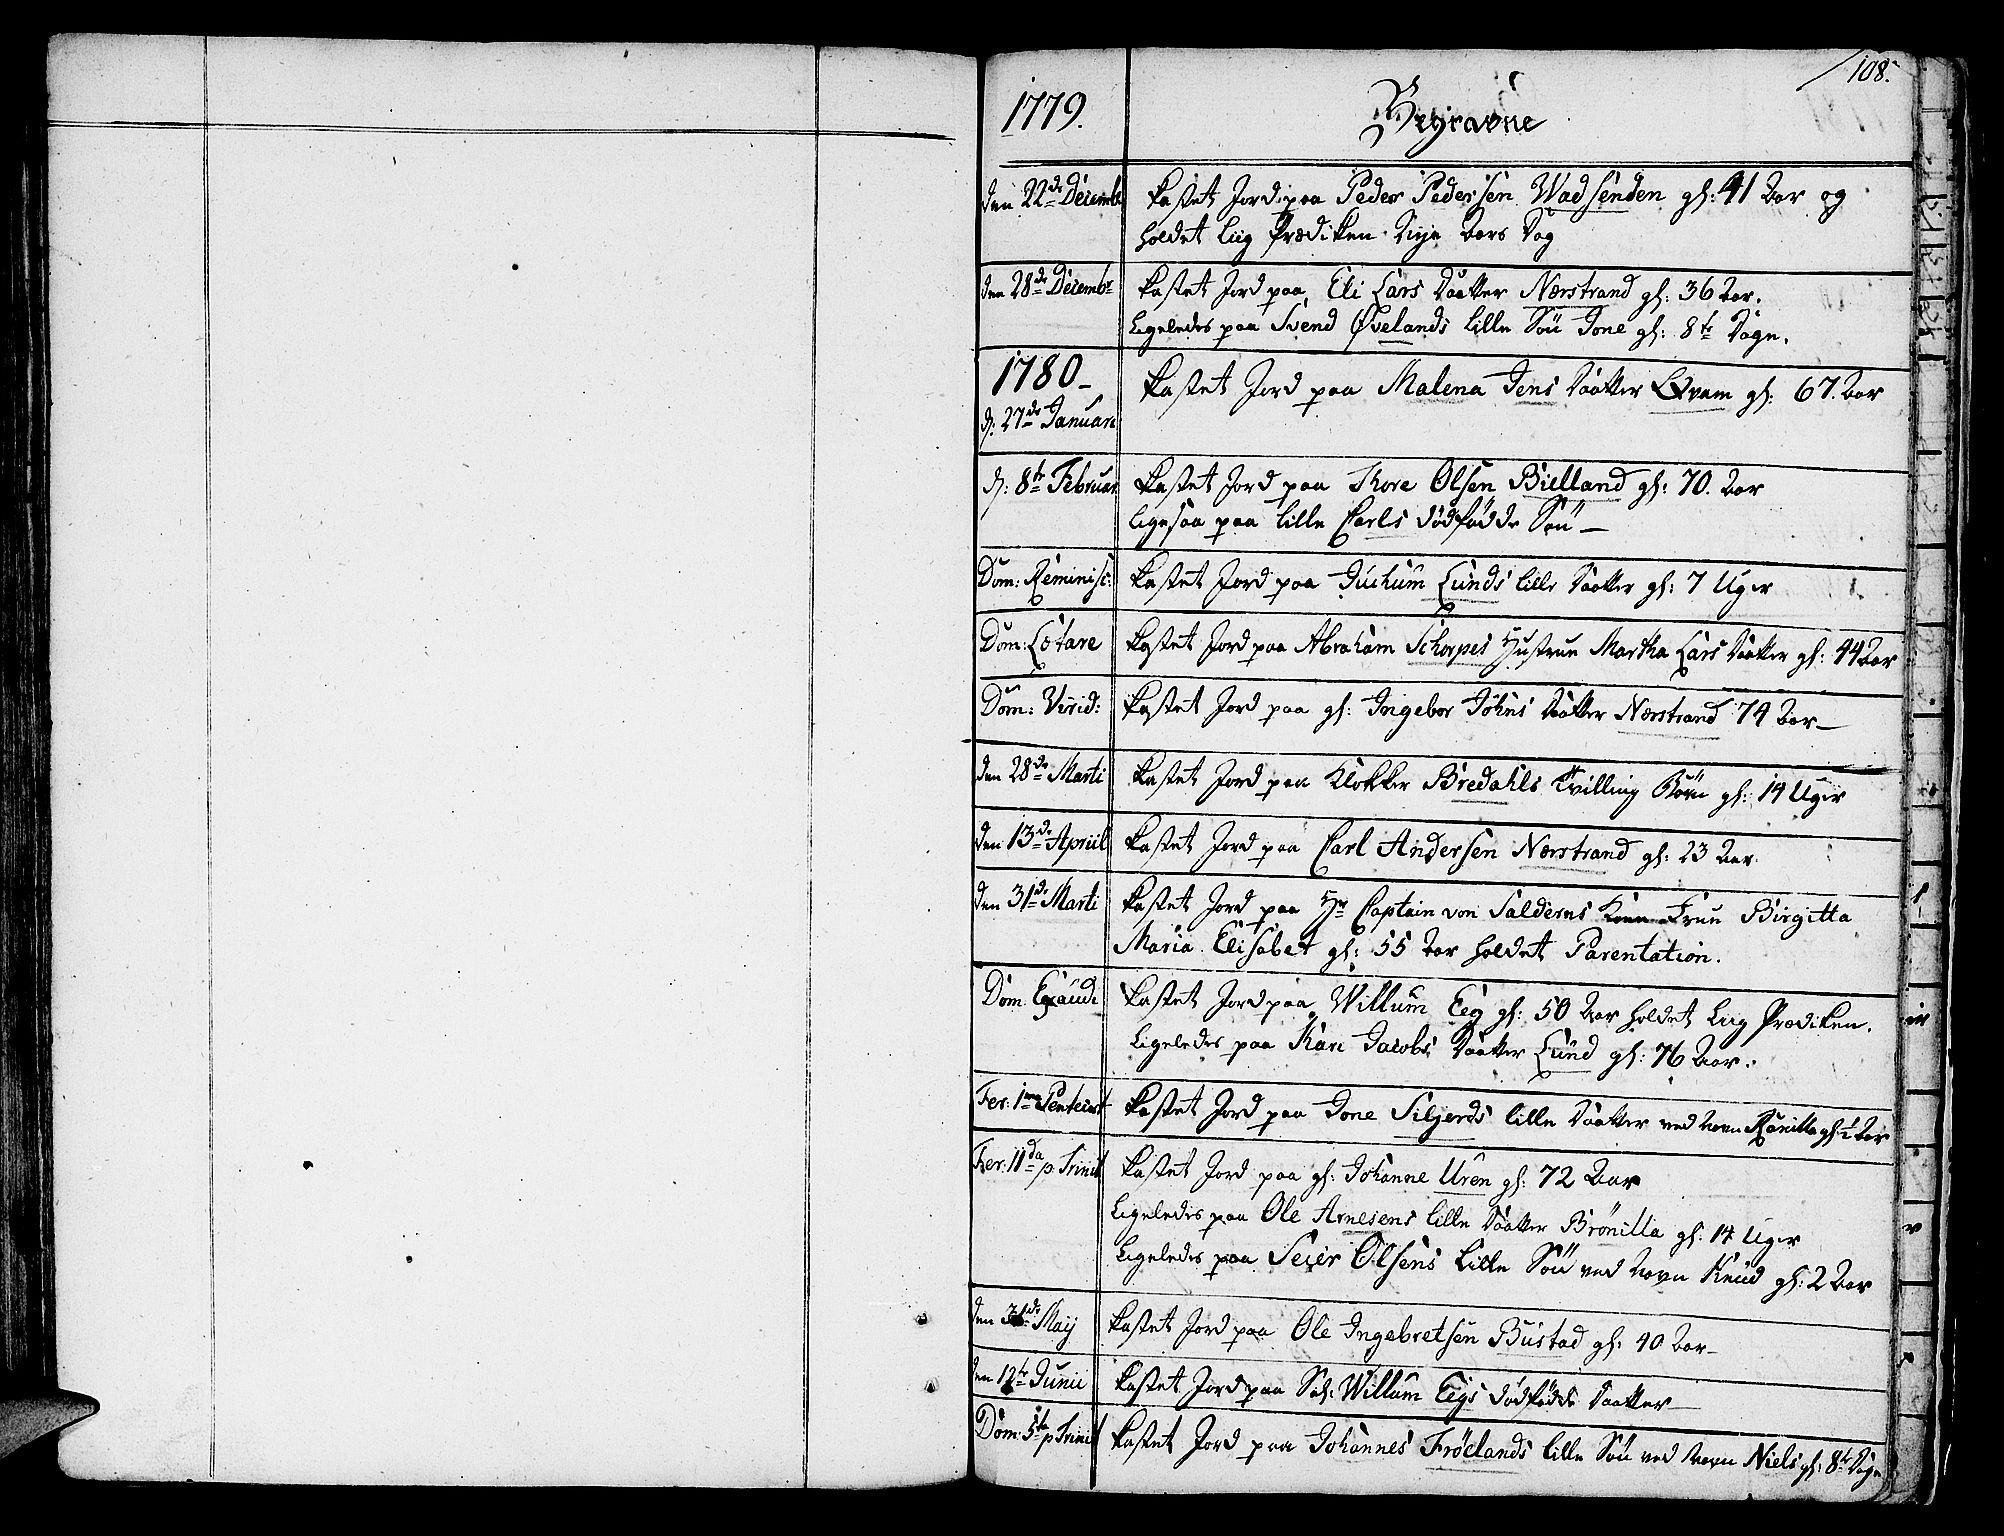 108.
1779. Begravne
den 22de Decembr kastet Jord paa Peder Pedersen Wadsenden gl: 41 Aar og
holdet Liig Prædiken Nye Aars Dag
den 28de Decembr kastet Jord paa Eli Lars Daatter Nærstrand gl: 36 Aar.
Ligeledes paa Svend Øvelands lille Søn Jone gl: 8te Dage.
1780 kastet Jord paa Malena Jens Daatter Qvam gl: 67. Aar
d: 27de Januari
d: 8te Februar kastet Jord paa Thore Olsen Bielland gl: 70. Aar
ligesaa paa lille Carls dødfødde Søn
Dom: Reminisc: kastet Jord paa Juchum Lunds lille Daatter gl: 7 Uger
Dom: Lætare kastet Jord paa Abraham Schorpes Hustrue Martha Lars Daatter gl: 44 Aar
Dom: Virid: kastet Jord paa gl: Ingebor Johns Daatter Nærstrand 74 Aar
den 28de Marti kastet Jord paa Klokker Bredahls Tvilling Børn gl: 14 Uger
den 13de Apriil kastet Jord paa Carl Andersen Nærstrand gl: 23 Aar.
den 31de Marti kastet Jord paa Hr Captein von Salderns Frue Birgitta
Maria Elisabet gl: 55 Aar holdet Parentation.
Dom: Exaudi kastet Jord paa Willum Eeg gl: 50 Aar holdet Liig Prædiken.
Ligeledes paa Kari Jacobs Daatter Lund gl: 76 Aar.
Fer: 1ma Pentecost kastet Jord paa Jone Siljerds lille Daatter ved Navn Ranilla gl: 1/2 Aar
Fer: 11da p Trinit kastet Jord paa gl: Johanne Uren gl: 72 Aar
Ligeledes paa Ole Arnesens lille Daatter Brønilla gl: 14 Uger
Ligeledes paa Seier Olsens lille Søn ved Navn Knud gl: 2 Aar
den 31de Maij kastet Jord paa Ole Ingebretsen Bustad gl: 40 Aar
den 12te Junii kastet Jord paa Sal: Willum Eegs dødfødde Daatter
Dom: 5te p Trinit kastet Jord paa Johannes Frøelands lille Søn ved Navn Niels gl: 8te Dage